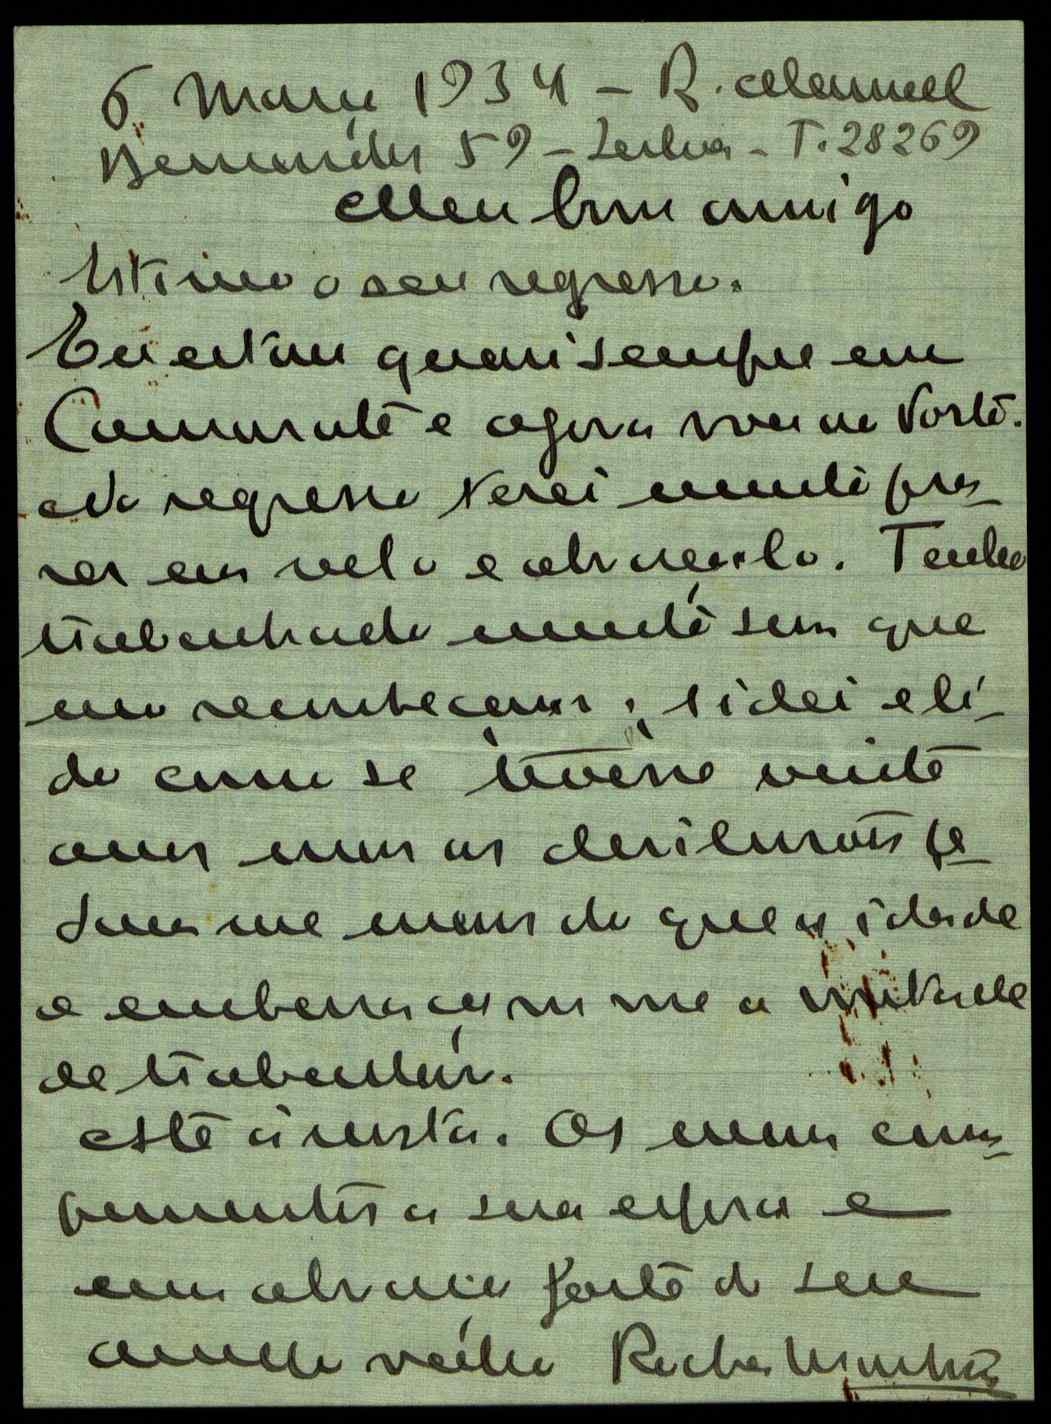 6 Março 1934 – R. Manuel
Bernardes 59 – Lisboa – T. 28269
Meu bom amigo
Estimo o seu regresso.
Eu estou quasi sempre em
Caminho e agora vou ao Norte.
No regresso terei muito pra-
zer em velo e abraçalo. Tenho
trabalhado muito sem que
me ; lido e li-
do como se tivesse vinte
anos mas as desilusões pe-
sam me mais do que a idade
e embaraçam me a vontade
de trabalhar.
Até á vista. Os meus cum-
primentos a sua esposa e
um abraço forte do seu
amigo velho Rocha Martins